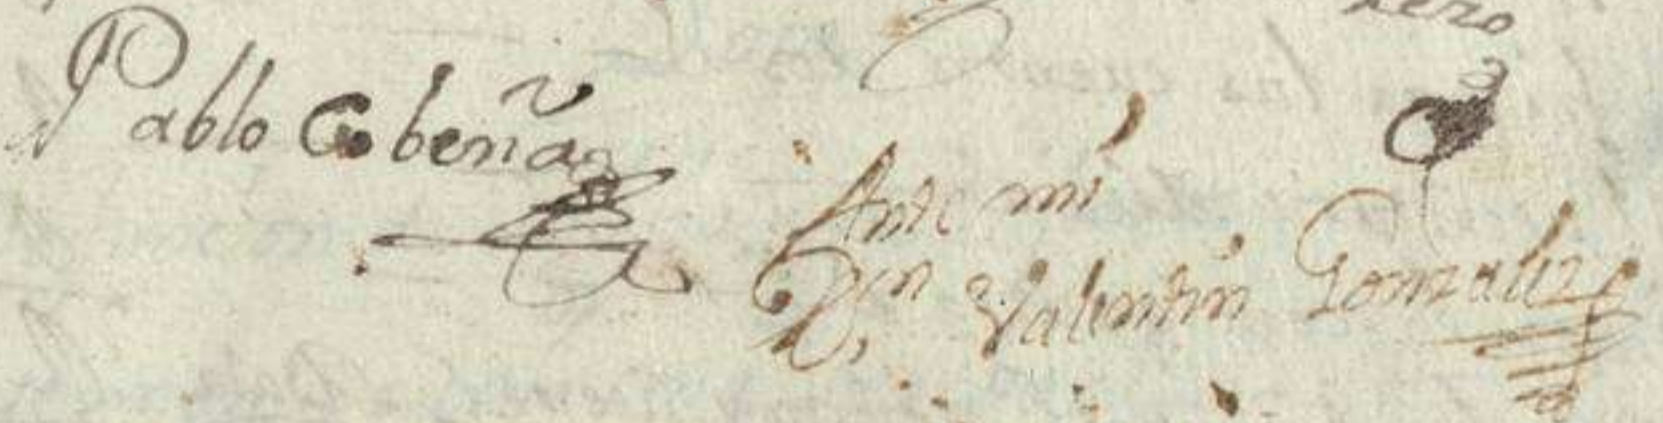 Pablo Cobeña
Ante mi
Don Valentin Gonzalez